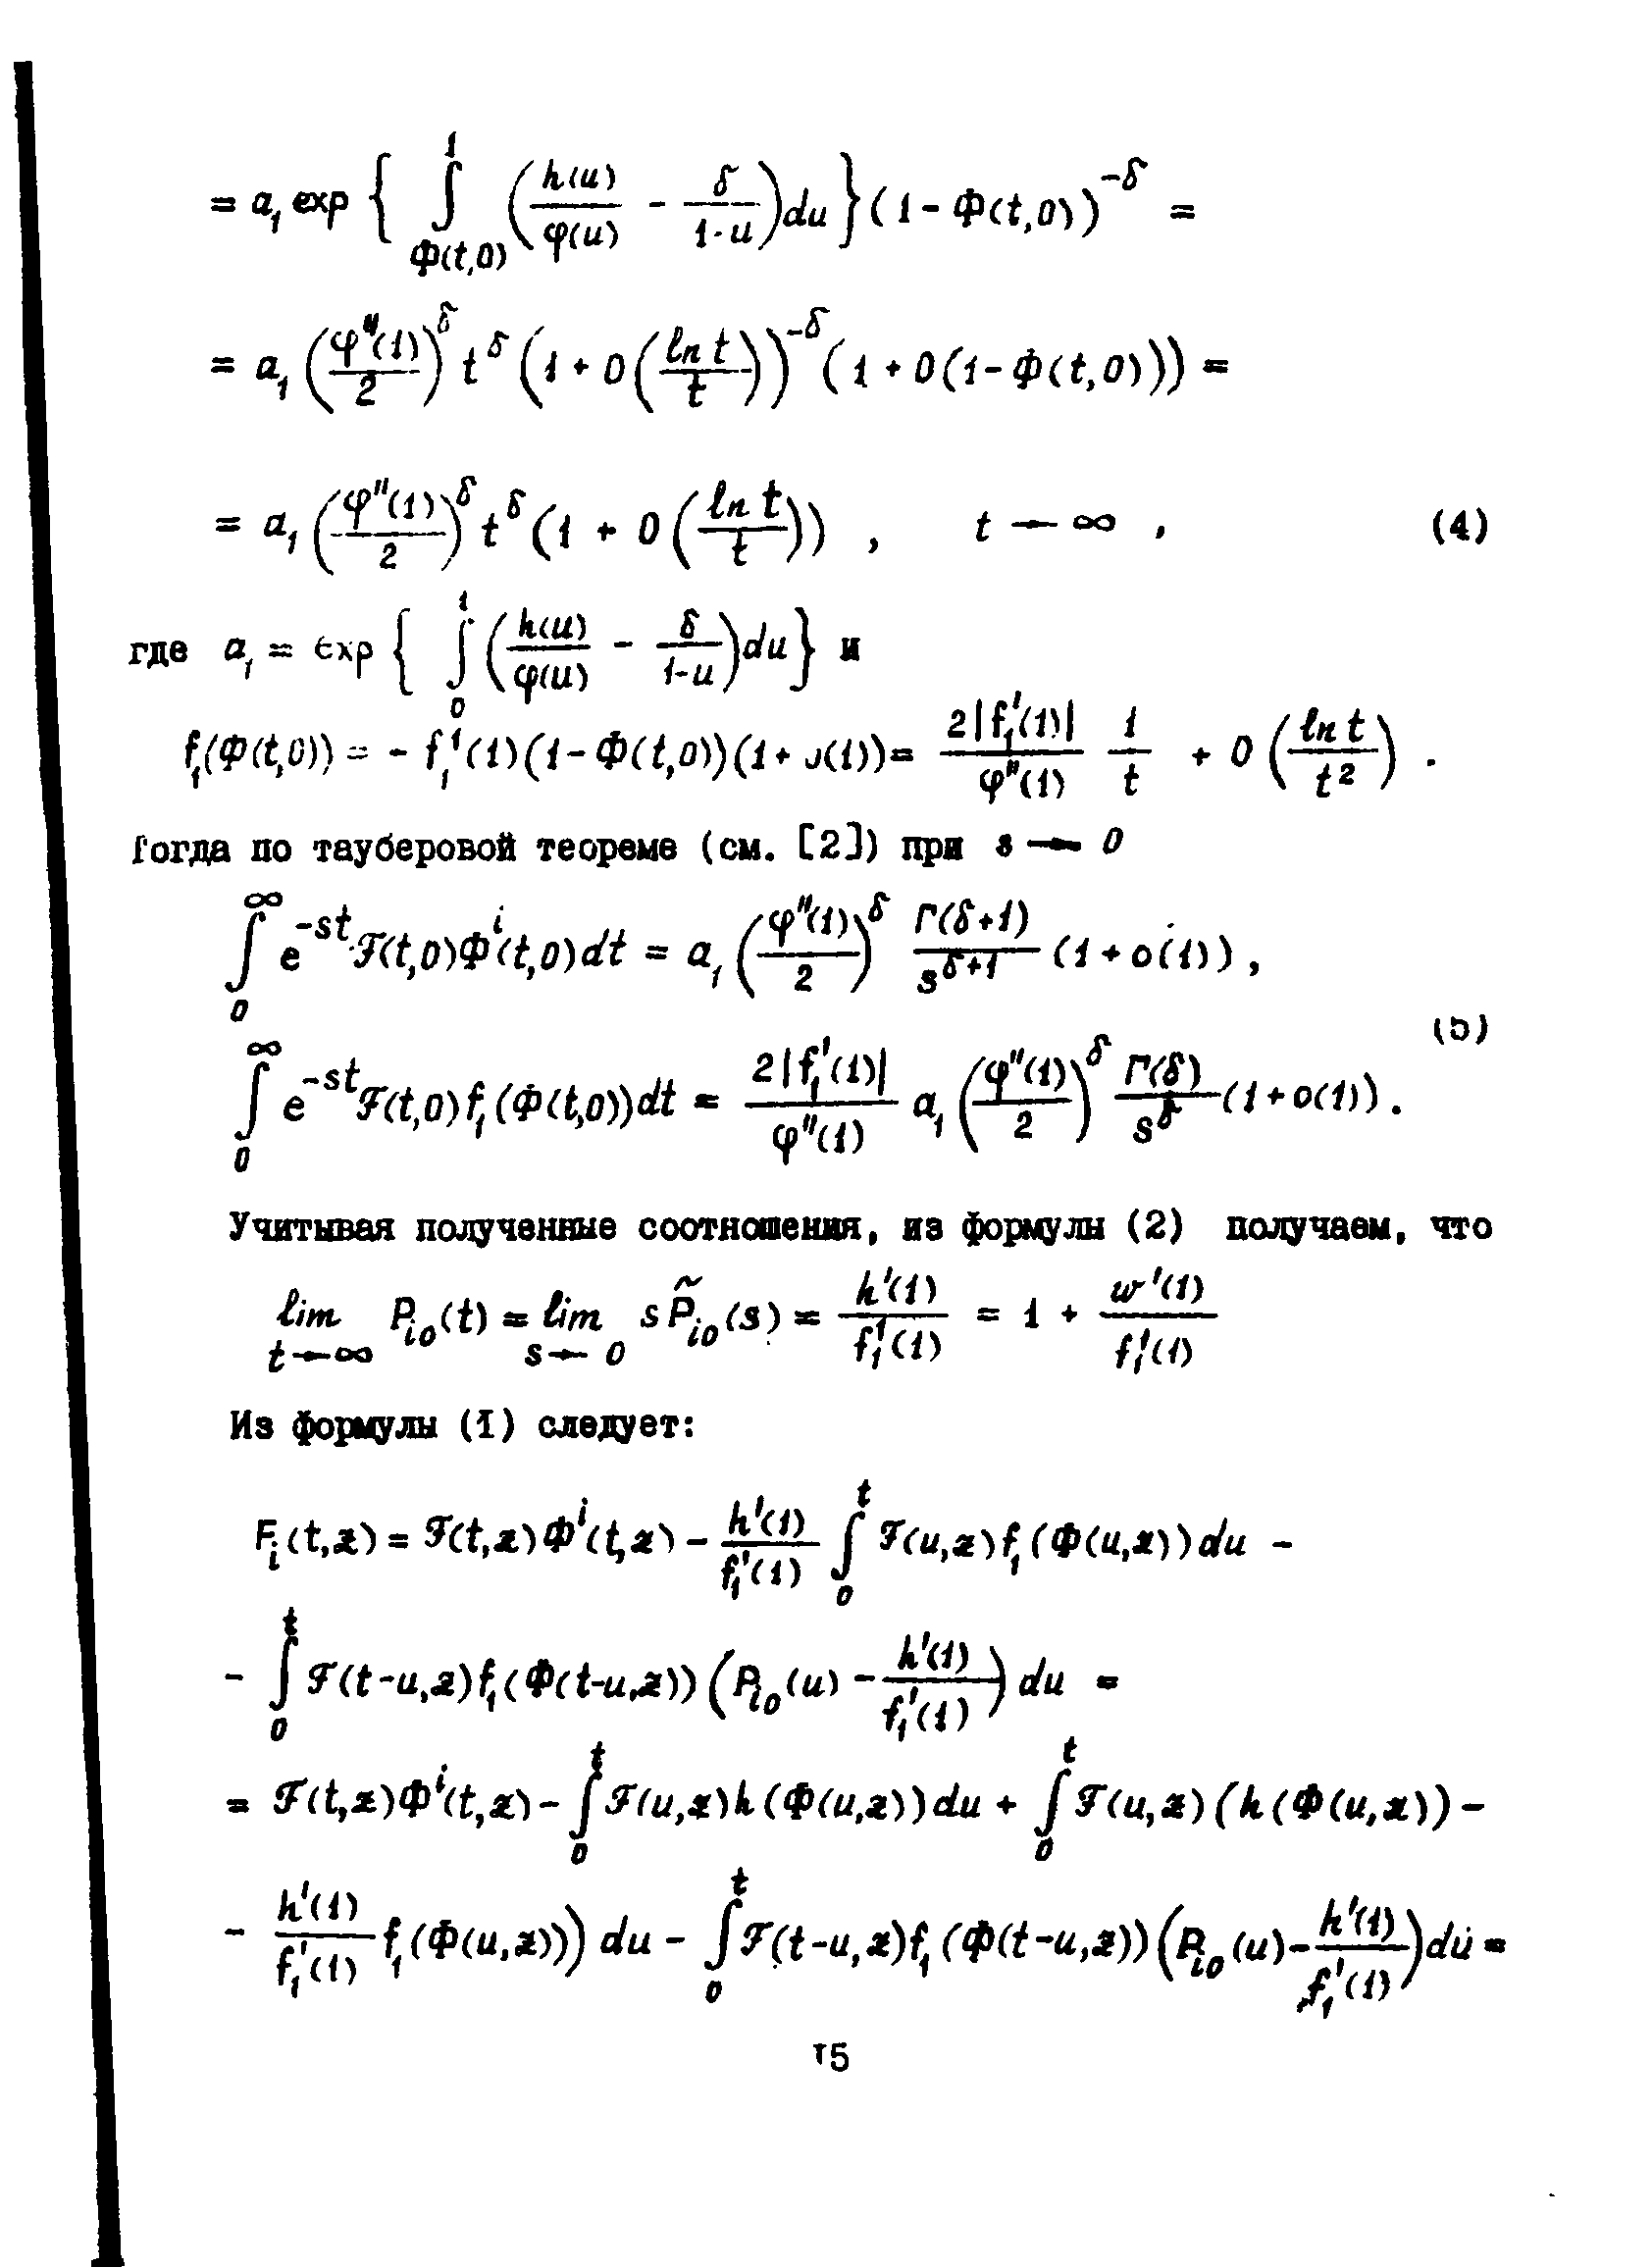 = a₁ exp { ∫_{Φ(t,0)}^{1} ( h(u)/φ(u) - δ/(1-u) ) du } (1 - Φ(t,0))^{-δ} =
= a₁ (φ''(1)/2)^δ t^δ (1 + O(ln t / t))^{-δ} (1 + O(1 - Φ(t,0))) =
= a₁ (φ''(1)/2)^δ t^δ (1 + O(ln t / t)) , t → ∞ , (4)
где a₁ = exp { ∫_{0}^{1} ( h(u)/φ(u) - δ/(1-u) ) du } и
f₁(Φ(t,0)) = - f₁'(1)(1 - Φ(t,0))(1 + o(1)) = 2|f₁'(1)|/φ''(1) 1/t + O(ln t / t²) .
Тогда по тауберовой теореме (см. [2]) при s → 0
∫_{0}^{∞} e^{-st} ℱ(t,0)Φ^i(t,0)dt = a₁ (φ''(1)/2)^δ Γ(δ+1)/s^{δ+1} (1 + o(1)),
(5)
∫_{0}^{∞} e^{-st} ℱ(t,0)f₁(Φ(t,0))dt = 2|f₁'(1)|/φ''(1) a₁ (φ''(1)/2)^δ Γ(δ)/s^δ (1 + o(1)).
Учитывая полученные соотношения, из формулы (2) получаем, что
lim_{t→∞} P_{i0}(t) = lim_{s→0} s P̃_{i0}(s) = h'(1)/f₁'(1) = 1 + w'(1)/f₁'(1)
Из формулы (1) следует:
F_i(t,z) = ℱ(t,z)Φ^i(t,z) - h'(1)/f₁'(1) ∫_{0}^{t} ℱ(u,z)f₁(Φ(u,z))du -
- ∫_{0}^{t} ℱ(t-u,z)f₁(Φ(t-u,z)) (P_{i0}(u) - h'(1)/f₁'(1)) du =
= ℱ(t,z)Φ^i(t,z) - ∫_{0}^{t} ℱ(u,z)h(Φ(u,z))du + ∫_{0}^{t} ℱ(u,z)(h(Φ(u,z)) -
- h'(1)/f₁'(1) f₁(Φ(u,z))) du - ∫_{0}^{t} ℱ(t-u,z)f₁(Φ(t-u,z)) (P_{i0}(u) - h'(1)/f₁'(1)) du =
15